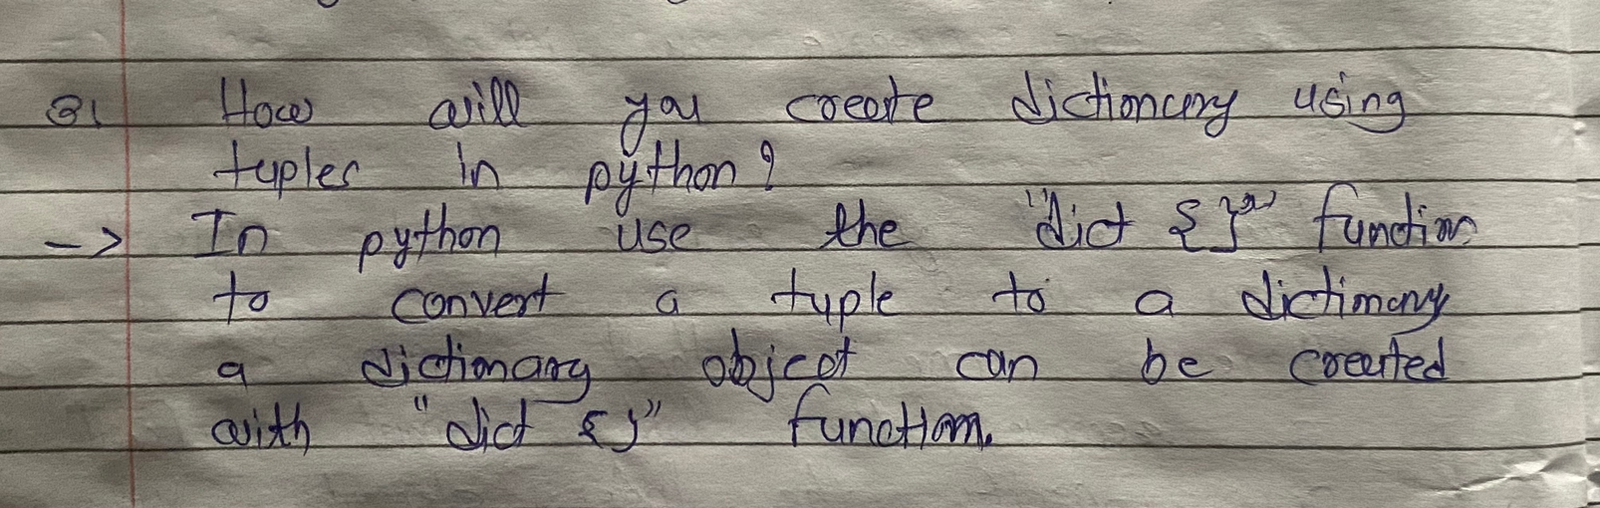 31 How will you create dictionary using
tuples in python?
-> In python use the "dict {}" function
to convert a tuple to a dictionary
a dictionary object can be created
with "dict {}" function.